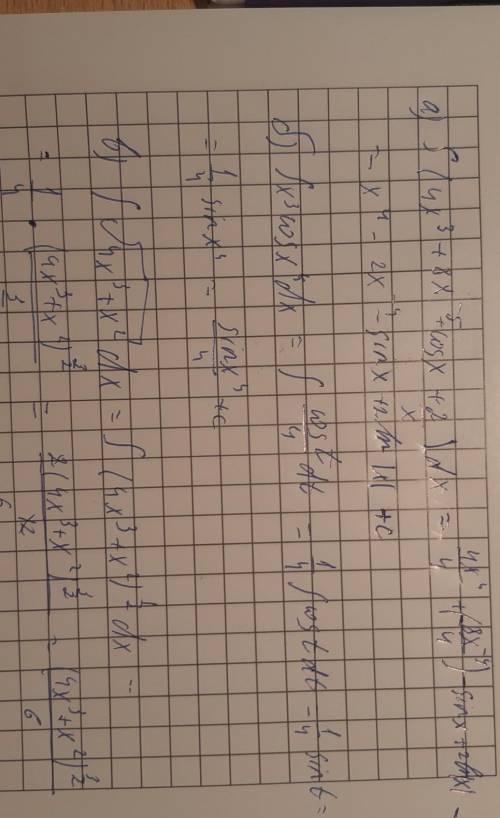 а) ∫ (4x³ + 8x⁻⁵ + cosx + 2/x) dx = 4x⁴/4 + (8x⁻⁴/4) - sinx + 2ln|x| -
= x⁴ - 2x⁻⁴ - sinx + 2ln|x| + c
б) ∫ x³cosx⁴dx = ∫ cost/4 dt = 1/4 ∫ cost dt = 1/4 sint =
= 1/4 sinx⁴ = sinx⁴/4 + c
в) ∫ √(4x³ + x²) dx = ∫ (4x³ + x²)^½ dx =
= 1/4 · (4x³ + x²)^(3/2) = 2(4x³ + x²)^(3/2) / = (4x³ + x²)^(3/2) / 6